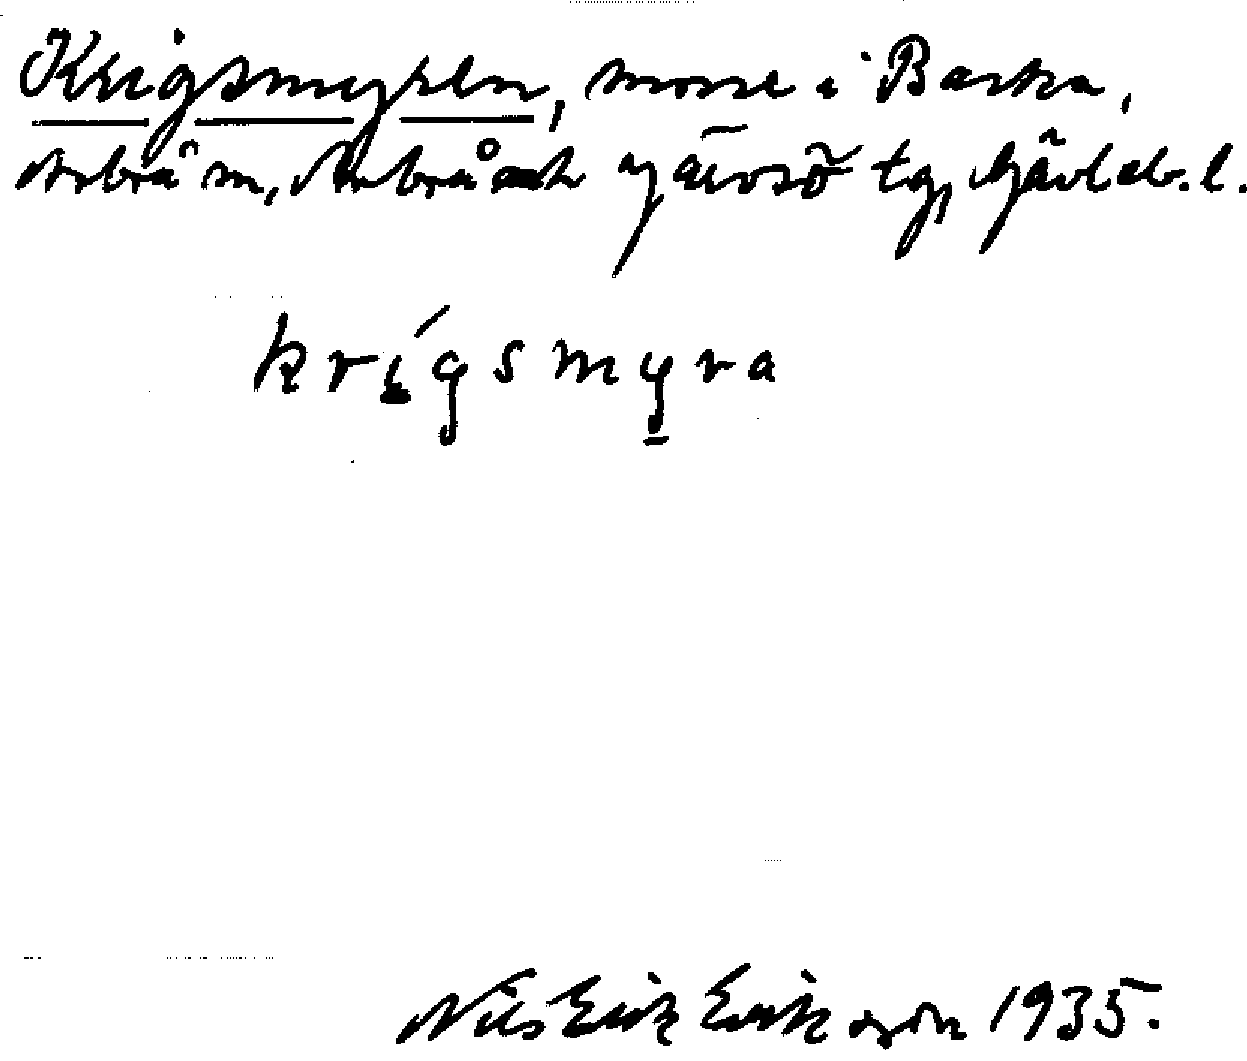 Krigsmyren, mosse i Barka,
Arbrå sn, Arbrå och Järvsö tg, Gävleb. l.
krígsmyra
Nils Erik Erikzon 1935.